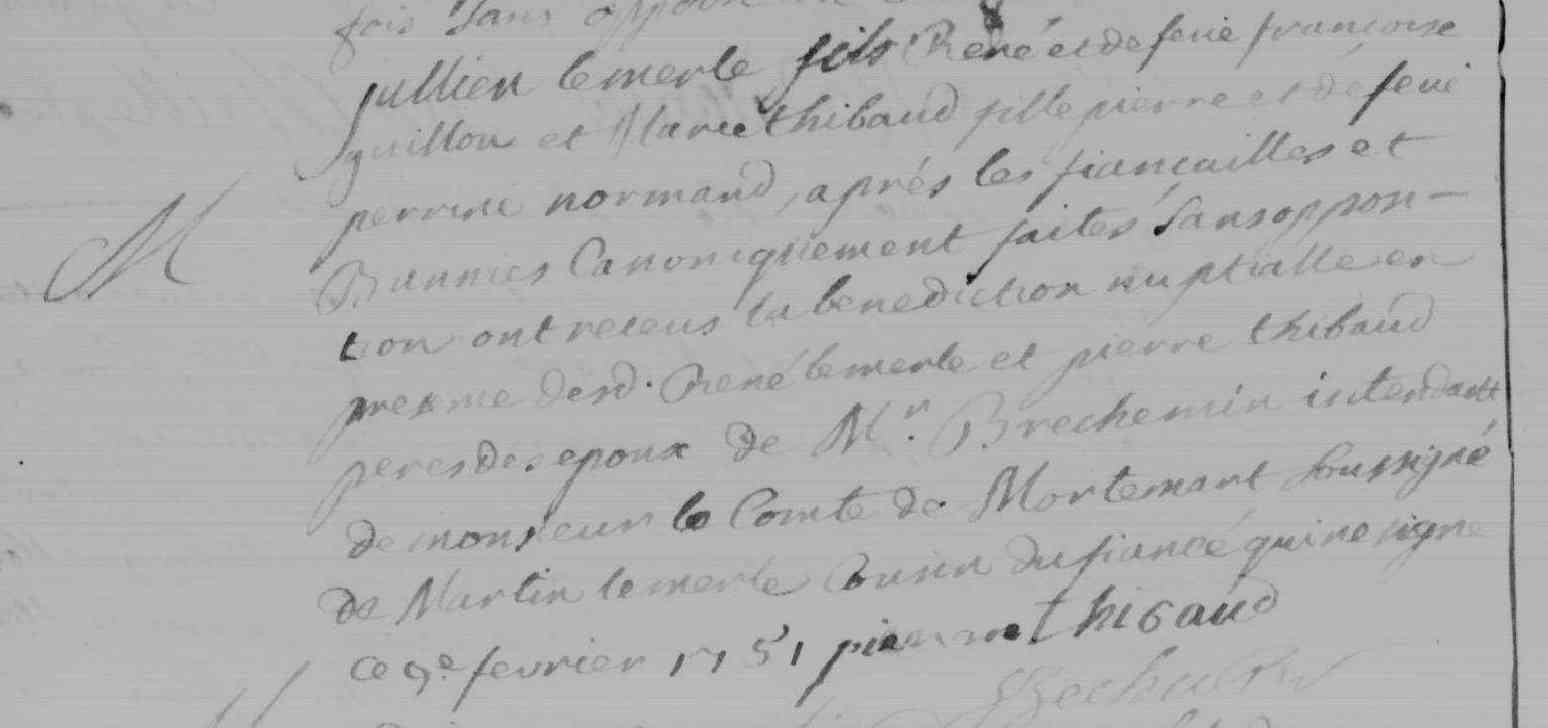 fois sans oppo
jullien lemerle fils René et de feüe françoise
guillou et Marie thibaud fille pierre et de feüe
perrine normand, aprés les fiancailles et
M
Bannies Canoniquement faites Sans opposi-
tion ont receus la benediction nuptialle en
presence desd. René lemerle et pierre thibaud
peres des epoux de Mr. Brechemin intendant
de monsieur le Comte de Mortemart Soussigné
de Martin lemerle Cousin du fiancé qui ne signe
ce 9e fevrier 1751 pierre thibaud